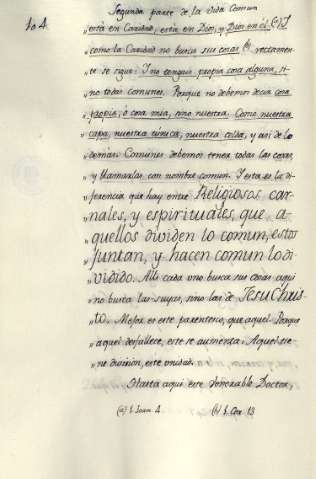 104
Segunda parte de la Vida Comun
„está en Caridad, está en Dios, y Dios en él (a) Y
„como la Caridad no busca sus cosas (b) rectamen-
„te se sigue: Y no tengais propia cosa alguna, si-
„no todas comunes. Porque no debemos decir cosa
„propia, ó cosa mia, sino nuestra. Como nuestra
„capa, nuestra tunica, nuestra celda, y asi de lo
„demas. Comunes debemos tener todas las cosas,
„y llamarlas con nombre comun. Y esta es la di-
„ferencia que hay entre Religiosos car-
nales, y espirituales, que, a-
quellos dividen lo comun, estos
juntan, y hacen comun lo di-
vidido. Alli cada uno busca sus cosas aqui
„no busca las suyas, sino las de Jesu Chris-
to. Mejor es este parentesco, que aquel. Porque
„aquel desfallece, este se aumenta. Aquel tie-
„ne division, este unidad.
Hasta aqui este Venerable Doctor,
(a) 1. Joan. 4. (b) 1. Cor. 13